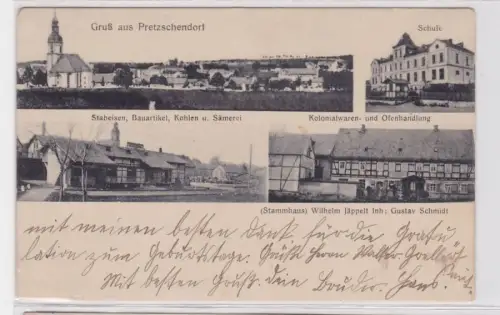 Gruß aus Pretzschendorf
Schule
Stabeisen, Bauartikel, Kohlen u. Sämerei
Kolonialwaren- und Ofenhandlung
(Stammhaus) Wilhelm Jäppelt Inh: Gustav Schmidt
mit meinen besten Dank für die Gratu
lation zum Geburtstage. Grüße Herrn Walter
Mit besten Gruß. dein Bruder Hans.